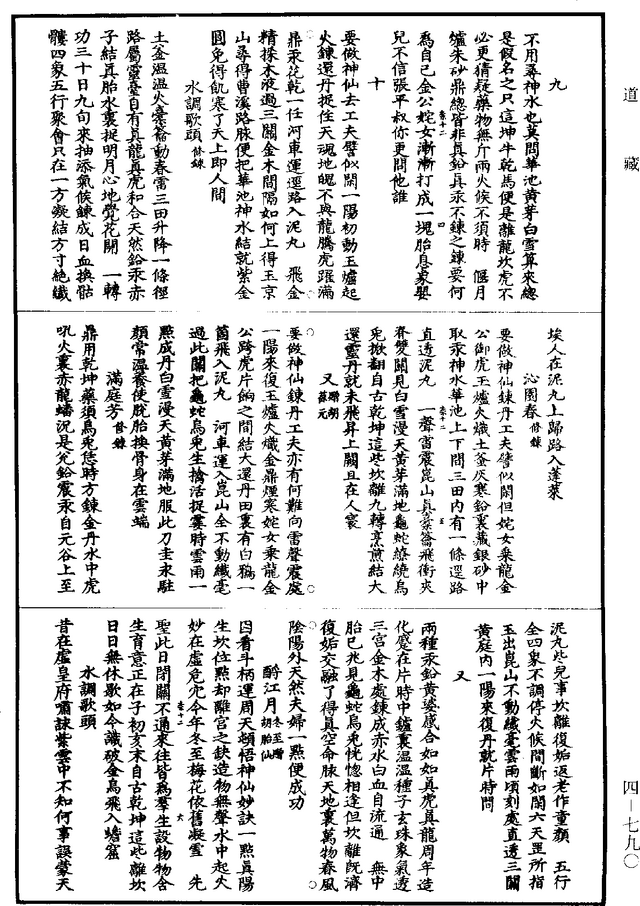 道藏
九
不用尋神水也莫問華池黃芽白雪算來總
是假名之只這坤牛乾馬便是離龍坎虎不
必更猜疑藥物無斤兩火候不須時　偃月
爐朱砂鼎總皆非真鉛真汞不鍊之鍊要何
卷十二　四
為自己金公姹女漸漸打成一塊胎息象嬰
兒不信張平叔你更問他誰
十
要做神仙去工夫譬似閑一陽初動玉爐起
火鍊還丹捉住天魂地魄不與龍騰虎躍滿
鼎汞花乾一任河車運逕路入泥丸　飛金
精採木液過三關金木間隔如何上得玉京
山尋得曹溪路脉便把華池神水結就紫金
圓免得飢寒了天上即人間
水調歌頭修鍊
土釜溫溫火橐籥動春雷三田升降一條徑
路屬靈臺自有真龍真虎和合天然鉛汞赤
子結真胎水裏捉明月心地覺花開　一轉
功三十日九旬來抽添氣候鍊成日血換骷
髏四象五行聚會只在一方凝結方寸絕纖
埃人在泥丸上歸路入蓬萊
沁園春修鍊
要做神仙鍊丹工夫譬似閑但姹女乘龍金
公御虎玉爐火熾土釜灰寒鉛裏藏銀砂中
取汞神水華池上下間三田內有一條逕路
卷十二　五
直透泥丸　一聲雷震崑山真橐籥飛衝夾
脊雙關見白雪漫天黃芽滿地龜蛇繚繞烏
兔掀翻自古乾坤這些坎離九轉烹煎結大
還靈丹就未飛昇上闕且在人寰
又贈胡葆元
要做神仙鍊丹工夫亦有何難向雷聲震處
一陽來復玉爐火熾金鼎煙寒姹女乘龍金
公跨虎片餉之間結大還丹田裏有白鴉一
箇飛入泥丸　河車運入崑山全不動纖毫
過此關把龜蛇烏兔生擒活捉霎時雲雨一
點成丹白雪漫天黃芽滿地服此刀圭永駐
顏常溫養使脫胎換骨身在雲端
滿庭芳修鍊
鼎用乾坤藥須烏兔恁時方鍊金丹水中虎
吼火裏赤龍蟠況是兌鉛震汞自元谷上至
泥丸些兒事坎離復姤返老作童顏　五行
全四象不調停火候間斷如閑六天罡所指
玉出崑山不動纖毫雲雨頃刻處直透三關
黃庭內一陽來復丹就片時間
又
兩種汞鉛黃婆感合如如真虎真龍周年造
化感在片時中鑪裏溫溫種子玄珠象氣透
三宮金木處鍊成赤水白血自流通　無中
胎已兆見龜蛇烏兔恍惚相逢但坎離既濟
復姤交融了得真空命脉天地裏萬物春風
陰陽外天然夫婦一點便成功
酹江月冬至贈胡胎仙
因看斗柄運周天頓悟神仙妙訣一點真陽
生坎位點却離宮之缺造物無聲水中起火
妙在虛危穴今年冬至梅花依舊凝雪　先
卷十二　六
聖此日閉關不通來往皆為羣生設物物含
生育意正在子初亥末自古乾坤這些離坎
日日無休歇如今識破金烏飛入蟾窟
水調歌頭
昔在虛皇府嘯詠紫雲中不知何事誤蒙天
四—七九〇